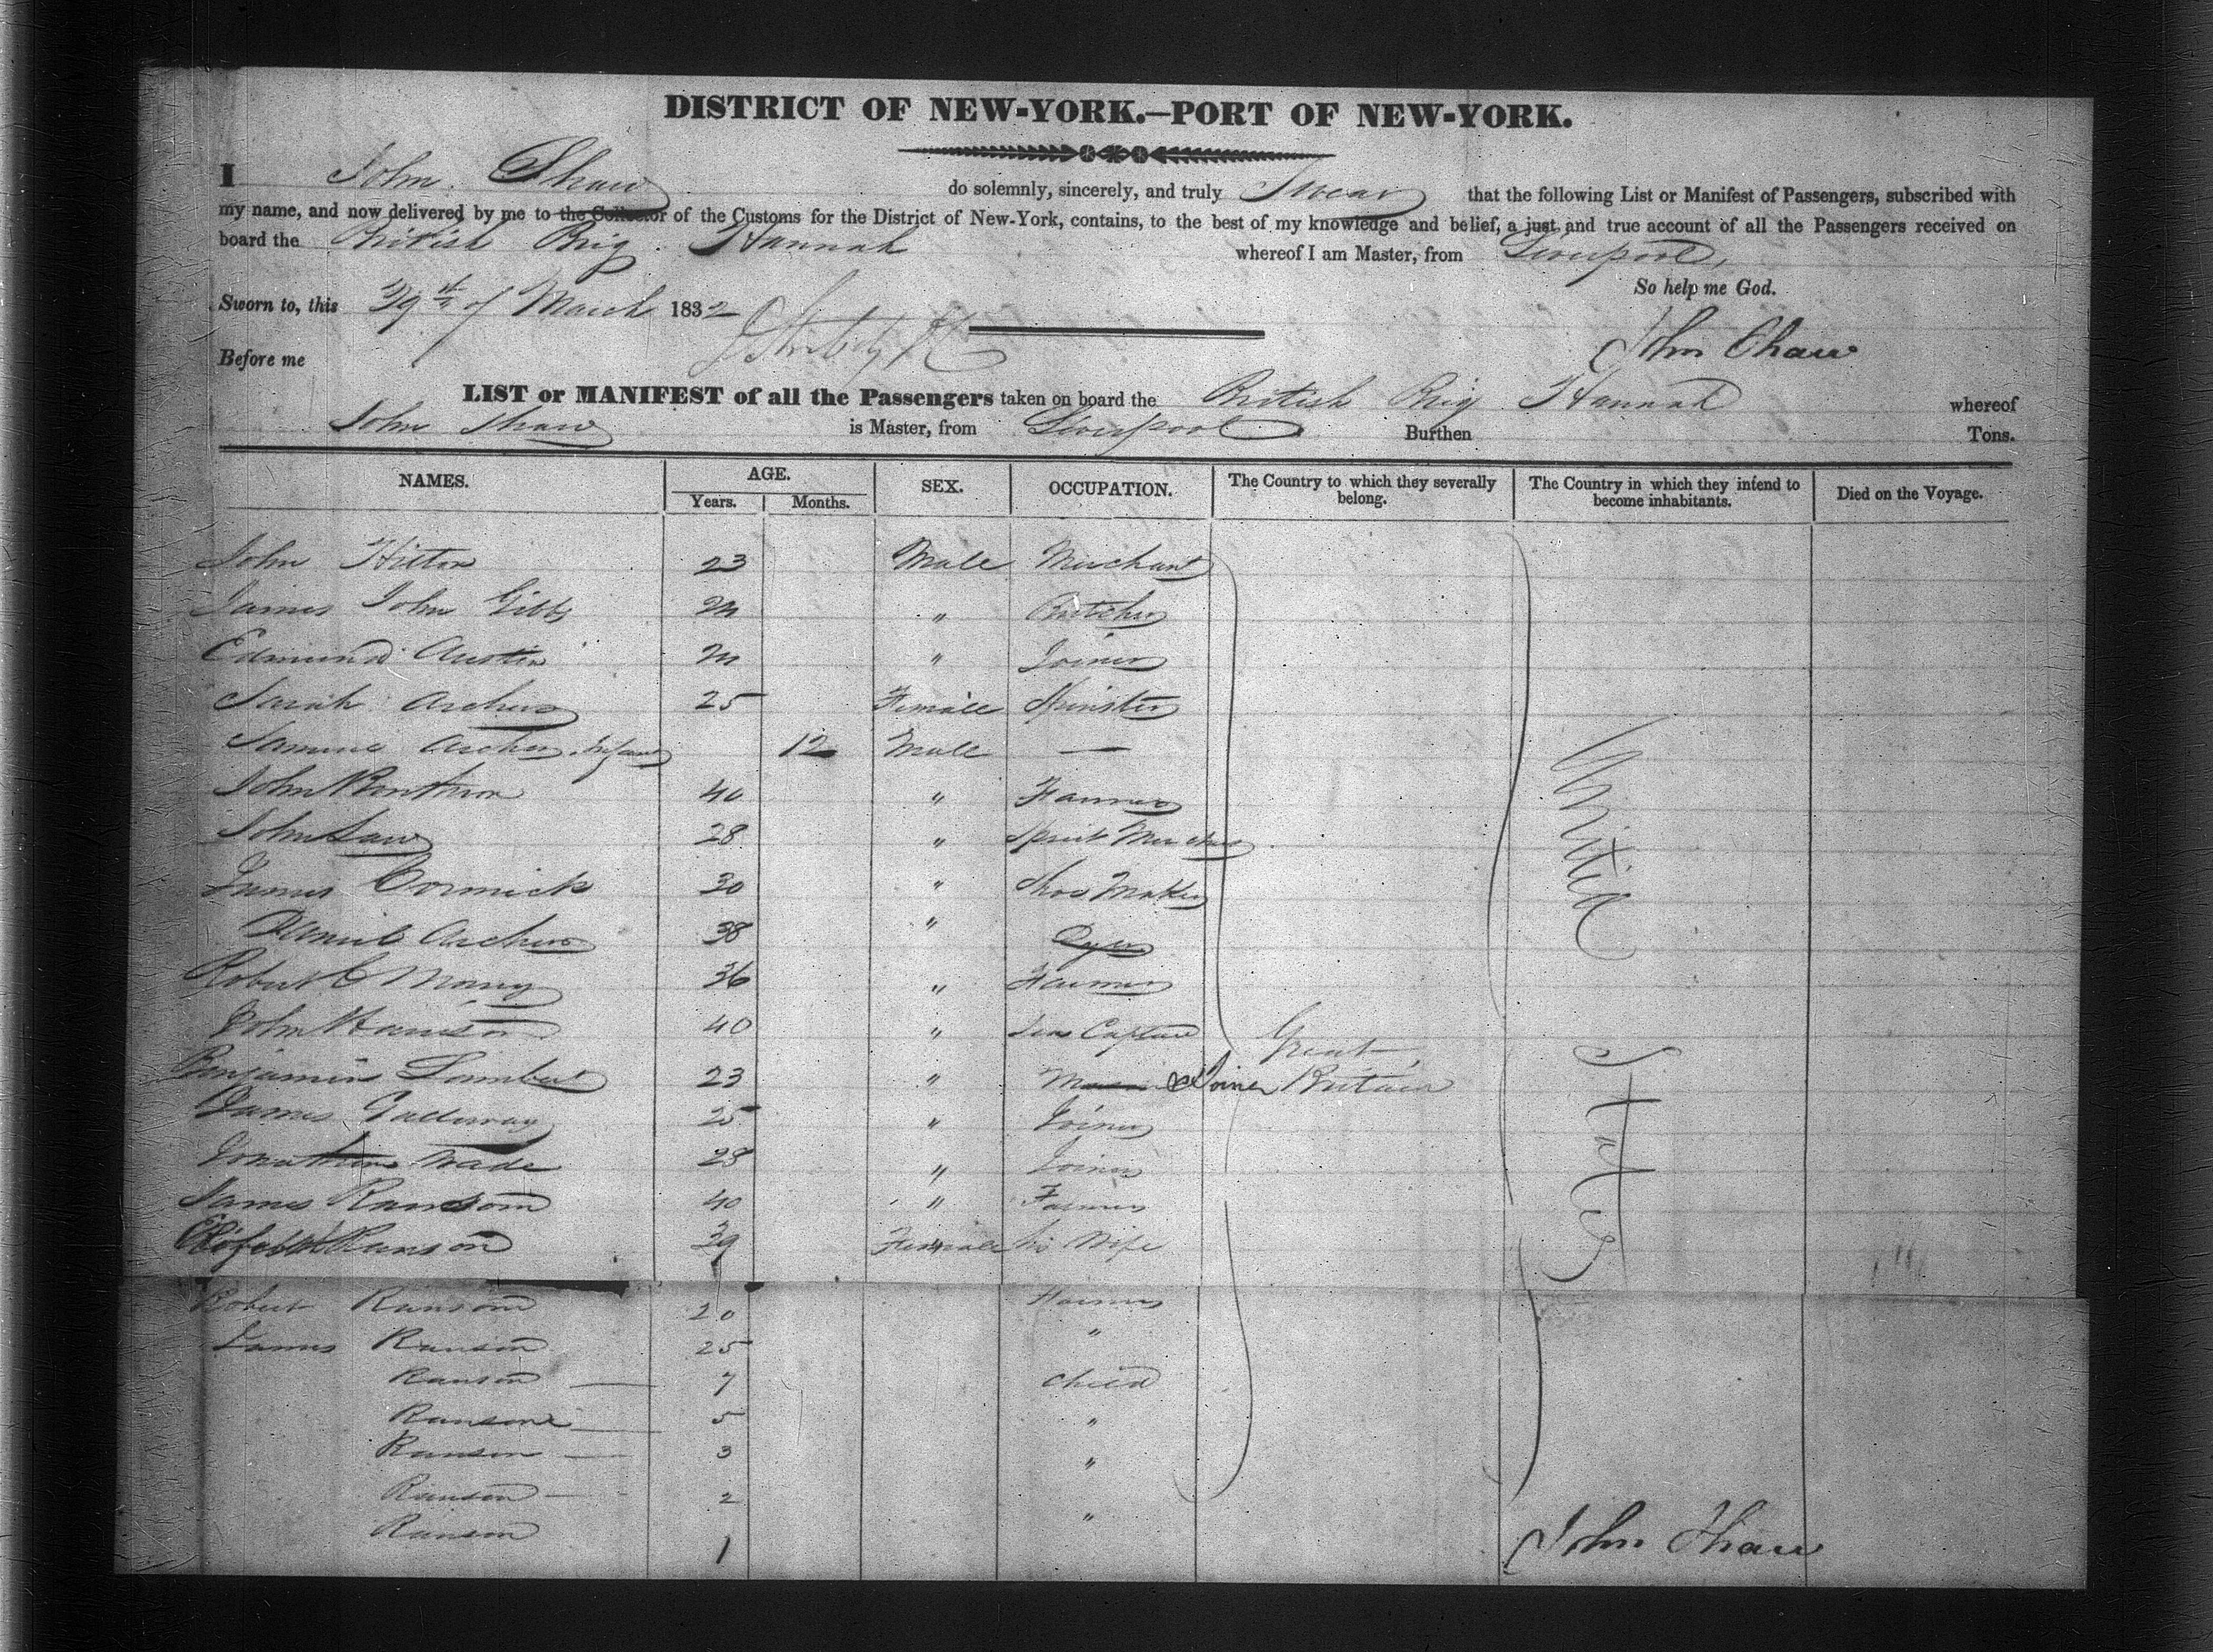 DISTRICT OF NEW-YORK.—PORT OF NEW-YORK.
I John Shaw do solemnly, sincerely, and truly Swear that the following List or Manifest of Passengers, subscribed with
my name, and now delivered by me to the Collector of the Customs for the District of New-York, contains, to the best of my knowledge and belief, a just and true account of all the Passengers received on
board the British Brig Hannah whereof I am Master, from Liverpool,
So help me God.
Sworn to, this 29th of March 1832
John Shaw
Before me
LIST or MANIFEST of all the Passengers taken on board the British Brig Hannah whereof
John Shaw is Master, from Liverpool Burthen Tons.
NAMES. AGE. SEX. OCCUPATION. The Country to which they severally belong. The Country in which they intend to become inhabitants. Died on the Voyage.
Years. Months.
John Hilton 23 Male Merchant
James John Gibbs 24 " Butcher
Edmund Austin 24 " Joiner
Sarah Archer 25 Female Spinster
Archer Infant 12 Male —
John 40 " Farmer
John Law 28 " Spirit Merchant
James Cormick 30 " Shoe Maker
Daniel Archer 38 " Dyer
Robert 36 " Farmer
John 40 " Sea Captain Great
Benjamin Lambert 23 " Joiner Britain
James Galloway 25 " Joiner
Jonathan Wade 28 " Joiner
James Ransom 40 " Farmer
Ranson 39 Female his Wife
United States
Robert Ransom 20 Farmer
James Ranson 25 "
Ranson — 7 Child
Ransone — 5 "
Ranson — 3 "
Ranson — 2 "
Ranson 1
John Shaw